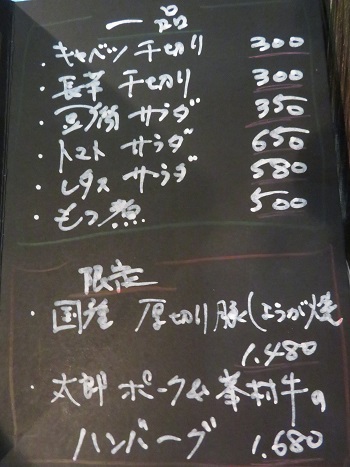 一品
・キャベツ千切り 300
・長芋千切り 300
・豆腐サラダ 350
・トマトサラダ 650
・レタスサラダ 580
・もつ煮 500
限定
・国産 厚切り豚しょうが焼
1.480
・太郎ポーク&峯村牛の
ハンバーグ 1.680